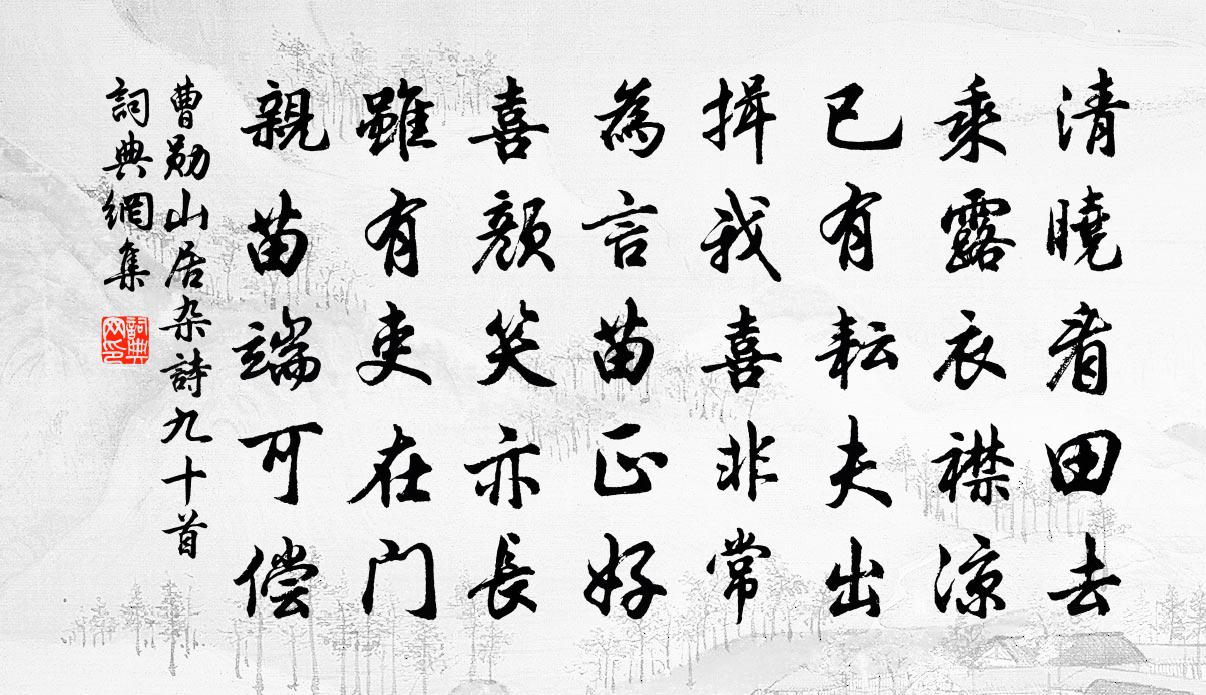 清曉看田去
乘露衣襟涼
已有耘夫出
揖我喜非常
為言苗正好
喜顏笑亦長
雖有吏在门
親苗端可偿
曹勛山居杂詩九十首
詞典網集
詞典
网印